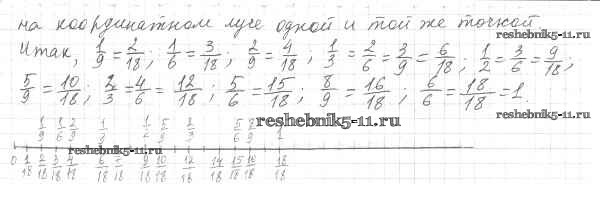 на координатном луче одной и той же точкой.
reshebnik5-11.ru
Итак, 1/9 = 2/18; 1/6 = 3/18; 2/9 = 4/18; 1/3 = 2/6 = 3/9 = 6/18; 1/2 = 3/6 = 9/18;
5/9 = 10/18; 2/3 = 4/6 = 12/18; 5/6 = 15/18; 8/9 = 16/18; 6/6 = 18/18 = 1.
reshebnik5-11.ru
1/9 1/6 2/9 1/3 1/2 5/9 2/3 5/6 8/9 1
reshebnik5-11.ru
0 1/18 2/18 3/18 4/18 6/18 7/18 9/18 10/18 12/18 14/18 15/18 16/18 18/18